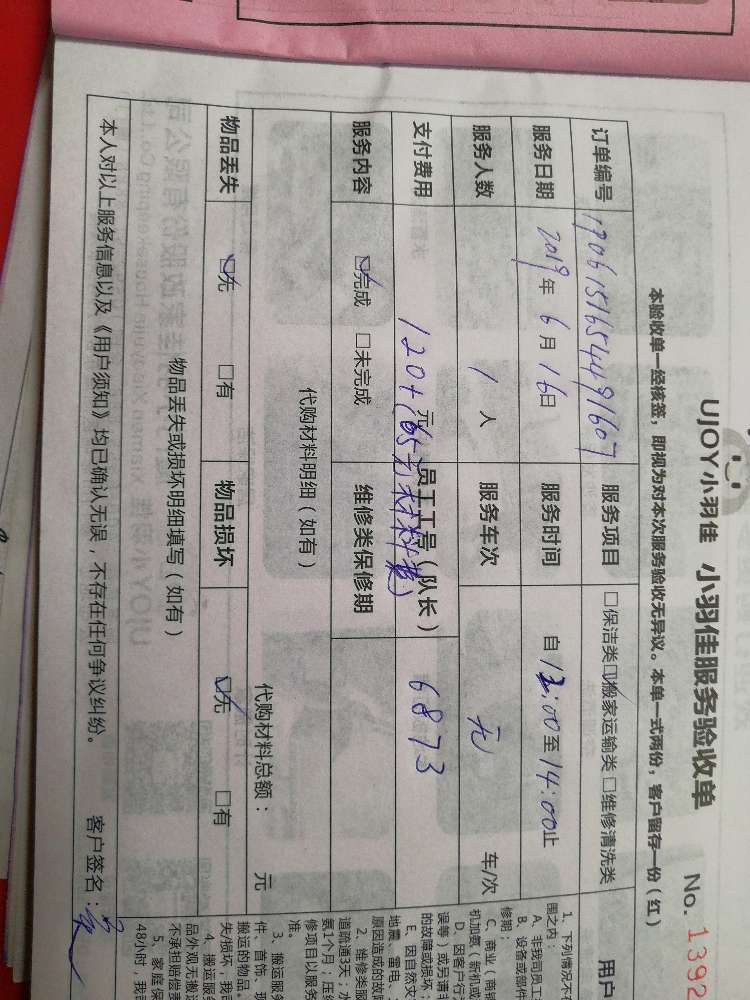 UJOY小羽佳 小羽佳服务验收单 No. 1392
本验收单一经核签，即视为对本次服务验收无异议。本单一式两份，客户留存一份（红）
订单编号 1906151654491607 服务项目 □保洁类☑搬家运输类□维修清洗类
服务日期 2019年6月16日 服务时间 自12:00至14:00止
服务人数 1人 服务车次 元 车/次
支付费用 120+(65元材料费) 元 员工工号（队长） 6873
服务内容 ☑完成 □未完成 维修类保修期
代购材料明细（如有） 代购材料总额： 元
物品丢失 ☑无 □有 物品损坏 ☑无 □有
物品丢失或损坏明细填写（如有）
本人对以上服务信息以及《用户须知》均已确认无误，不存在任何争议纠纷。 客户签名：
用户
1、下列情况不
围之内：
A、非我司员工
B、设备或部件
修期：
C、商业（商铺
D、因客户行
E、因自然灾
地震、雷电、
2、维修类服
原因造成的故
道疏通3天；水
氨1个月；压
修项目以服务
准。
3、搬运服务
件、首饰、现
搬运的物品。
失/损坏，我
4、搬运服务
品外观无搬运
不承担赔偿责
5、家庭保
48小时，我司